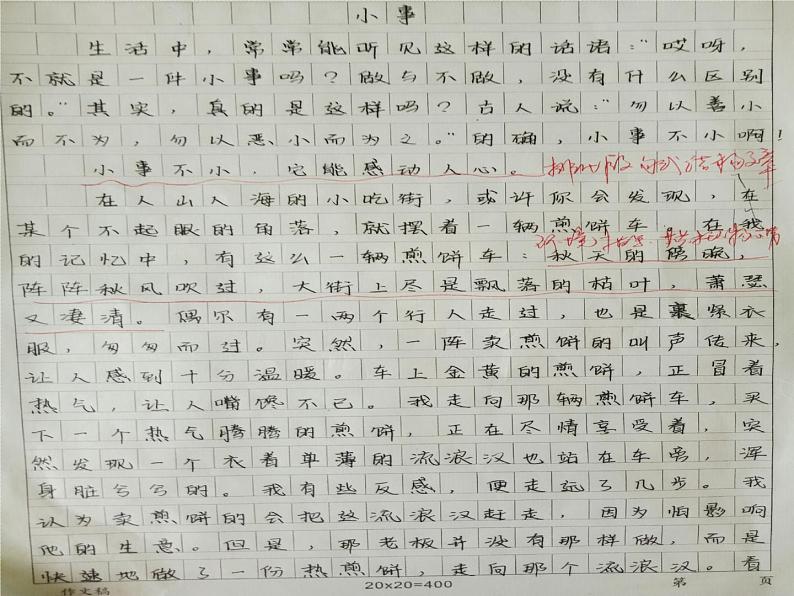 小事
生活中，常常能听见这样的话语："哎呀，
不就是一件小事吗？做与不做，没有什么区别
的。"其实，真的是这样吗？古人说："勿以善小
而不为，勿以恶小而为之。"的确，小事不小啊！
小事不小，它能感动人心。
在人山人海的小吃街，或许你会发现，在
某个不起眼的角落，就摆着一辆煎饼车。在我
的记忆中，有这么一辆煎饼车：秋天的傍晚，
阵阵秋风吹过，大街上尽是飘落的枯叶，萧瑟
又凄清。偶尔有一两个行人走过，也是裹紧衣
服，匆匆而过。突然，一阵卖煎饼的叫声传来，
让人感到十分温暖。车上金黄的煎饼，正冒着
热气，让人嘴馋不已。我走向那辆煎饼车，买
下一个热气腾腾的煎饼，正在尽情享受着，突
然发现一个衣着单薄的流浪汉也站在车旁，浑
身脏兮兮的。我有些反感，便走远了几步。我
认为卖煎饼的会把这流浪汉赶走，因为怕影响
他的生意。但是，那老板并没有那样做，而是
快速地做了一份热煎饼，走向那个流浪汉。看
作文稿
20×20=400
第 页